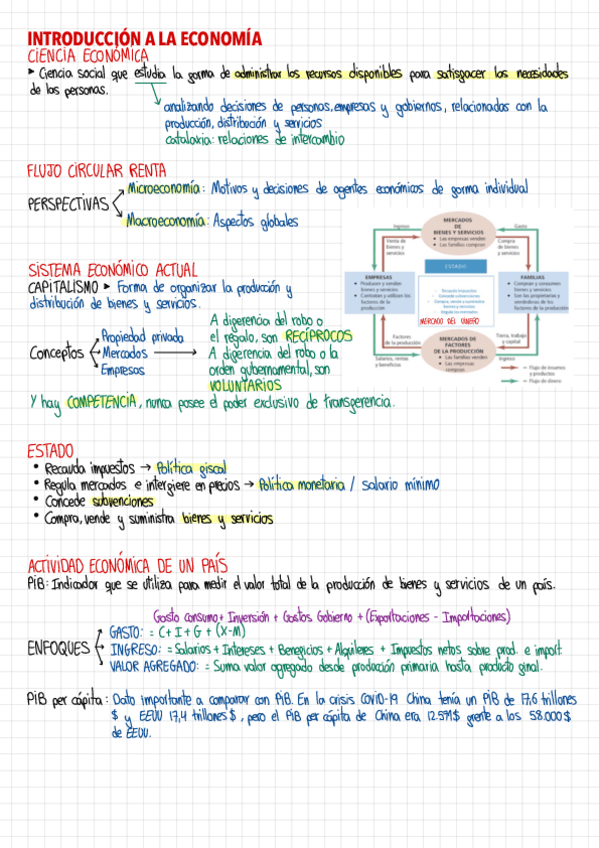 INTRODUCCIÓN A LA ECONOMÍA
CIENCIA ECONÓMICA
▸ Ciencia social que estudia la forma de administrar los recursos disponibles para satisfacer las necesidades
de las personas.
analizando decisiones de personas, empresas y gobiernos, relacionadas con la
producción, distribución y servicios
catalaxia: relaciones de intercambio
FLUJO CIRCULAR RENTA
PERSPECTIVAS
Microeconomía: Motivos y decisiones de agentes económicos de forma individual
Macroeconomía: Aspectos globales
MERCADOS
DE
BIENES Y SERVICIOS
• Las empresas venden
• Las familias compran
Ingresos
Gasto
Venta de
bienes y
servicios
Compra
de bienes y
servicios
ESTADO
EMPRESAS
• Producen y venden
bienes y servicios
• Contratan y utilizan los
factores de la
producción
FAMILIAS
• Compran y consumen
bienes y servicios
• Son las propietarias y
vendedoras de los
factores de la producción
- Recauda impuestos
- Concede subvenciones
- Compra, vende y suministra
bienes y servicios
- Regula los mercados
MERCADO DEL DINERO
Factores
de la producción
Tierra, trabajo
y capital
MERCADOS DE
FACTORES
DE LA PRODUCCIÓN
• Las familias venden
• Las empresas
compran
Salarios, rentas
y beneficios
Ingreso
= Flujo de insumos
y productos
= Flujo de dinero
SISTEMA ECONÓMICO ACTUAL
CAPITALISMO ▸ Forma de organizar la producción y
distribución de bienes y servicios.
Conceptos
Propiedad privada
Mercados
Empresas
A diferencia del robo o
el regalo, son RECÍPROCOS
A diferencia del robo o la
orden gubernamental, son
VOLUNTARIOS
Y hay COMPETENCIA, nunca posee el poder exclusivo de transferencia.
ESTADO
• Recauda impuestos → Política fiscal
• Regula mercados e interfiere en precios → Política monetaria / Salario mínimo
• Concede subvenciones
• Compra, vende y suministra bienes y servicios
ACTIVIDAD ECONÓMICA DE UN PAÍS
PIB: Indicador que se utiliza para medir el valor total de la producción de bienes y servicios de un país.
Gasto consumo + Inversión + Gastos Gobierno + (Exportaciones - Importaciones)
ENFOQUES
GASTO: = C + I + G + (X-M)
INGRESO: = Salarios + Intereses + Beneficios + Alquileres + Impuestos netos sobre prod. e import.
VALOR AGREGADO: = Suma valor agregado desde producción primaria hasta producto final.
PIB per cápita: Dato importante a comparar con PIB. En la crisis COVID-19 China tenía un PIB de 17,6 trillones
$ y EEUU 17,4 trillones $, pero el PIB per cápita de China era 12.571$ frente a los 58.000$
de EEUU.